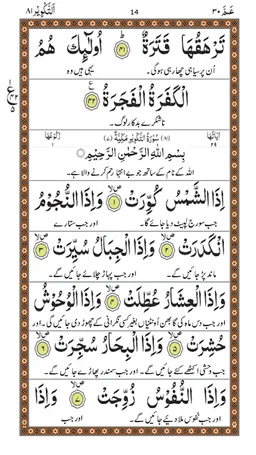 عَمَّ ٣٠ 14 اَلتَّكْوِيْر ٨١
تَرْهَقُهَا قَتَرَةٌ ؕ ﴿۴۱﴾ اُولٰٓئِكَ هُمُ
اُن پر سیاہی چھا رہی ہوگی۔ یہی ہیں وہ
الْكَفَرَةُ الْفَجَرَةُ ﴿۴۲﴾
ناشکرے بدکار لوگ۔
اٰیَاتُهَا ٢٩ سُوْرَةُ التَّكْوِيْرِ مَكِّيَّةٌ (٧) رُكُوْعُهَا ١
بِسْمِ اللّٰهِ الرَّحْمٰنِ الرَّحِيْمِ
اللہ کے نام کے ساتھ جو بے انتہا رحم کرنے والا ہے۔
اِذَا الشَّمْسُ كُوِّرَتْ ﴿۱﴾ وَاِذَا النُّجُوْمُ
جب سورج لپیٹ دیا جائے گا۔ اور جب ستارے
انْكَدَرَتْ ﴿۲﴾ وَاِذَا الْجِبَالُ سُيِّرَتْ ﴿۳﴾
ماند پڑ جائیں گے۔ اور جب پہاڑ چلائے جائیں گے۔
وَاِذَا الْعِشَارُ عُطِّلَتْ ﴿۴﴾ وَاِذَا الْوُحُوْشُ
اور جب دس ماہ کی گابھن اونٹنیاں بغیر کسی نگرانی کے چھوڑ دی جائیں گی۔ اور
حُشِرَتْ ﴿۵﴾ وَاِذَا الْبِحَارُ سُجِّرَتْ ﴿۶﴾
جب وحشی اکٹھے کئے جائیں گے۔ اور جب سمندر پھاڑے جائیں گے۔
وَاِذَا النُّفُوْسُ زُوِّجَتْ ﴿۷﴾ وَاِذَا
اور جب نفوس ملا دیئے جائیں گے۔ اور جب